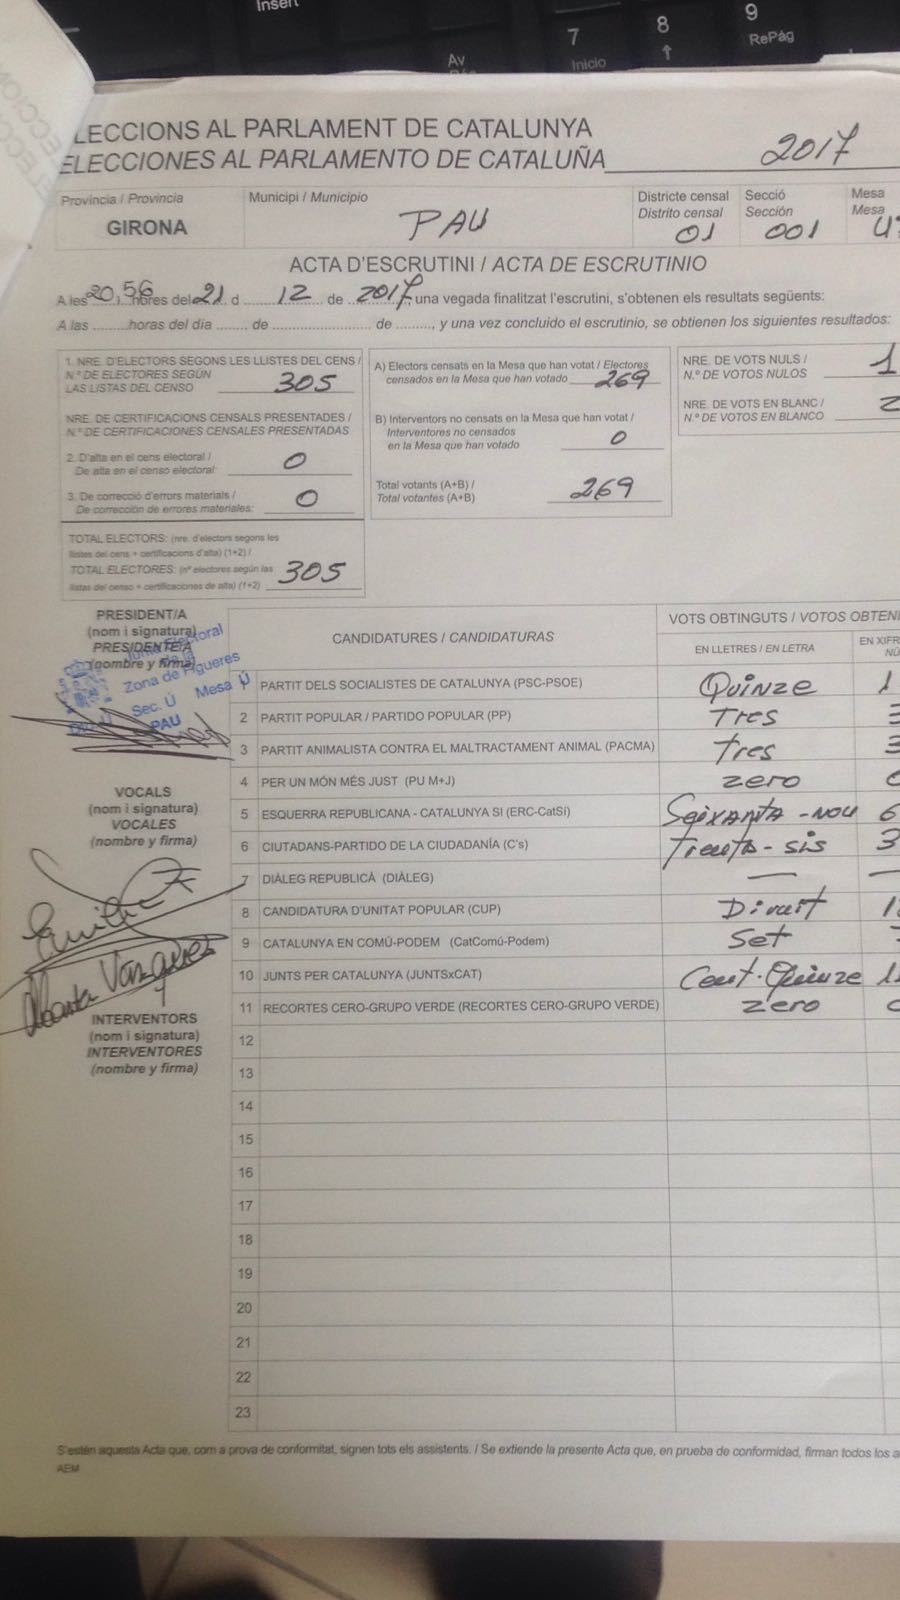 Insert
7
Inicio
8
↑
9
RePág
Av
LECCIONS AL PARLAMENT DE CATALUNYA
ELECCIONES AL PARLAMENTO DE CATALUÑA 2017
Provincia / Provincia
GIRONA
Municipi / Municipio
PAU
Districte censal
Distrito censal
01
Secció
Sección
001
Mesa
Mesa
ACTA D'ESCRUTINI / ACTA DE ESCRUTINIO
A les 20,56 hores del 21 d 12 de 2017, una vegada finalitzat l'escrutini, s'obtenen els resultats següents:
A las ........horas del día ....... de ...................... de ........, y una vez concluido el escrutinio, se obtienen los siguientes resultados:
1. NRE. D'ELECTORS SEGONS LES LLISTES DEL CENS /
N.º DE ELECTORES SEGÚN
LAS LISTAS DEL CENSO 305
NRE. DE CERTIFICACIONS CENSALS PRESENTADES /
N.º DE CERTIFICACIONES CENSALES PRESENTADAS
2. D'alta en el cens electoral /
De alta en el censo electoral: 0
3. De correcció d'errors materials /
De corrección de errores materiales: 0
TOTAL ELECTORS: (nre. d'electors segons les
llistes del cens + certificacions d'alta) (1+2) /
TOTAL ELECTORES: (nº electores según las
listas del censo + certificaciones de alta) (1+2) 305
A) Electors censats en la Mesa que han votat / Electores
censados en la Mesa que han votado 269
B) Interventors no censats en la Mesa que han votat /
Interventores no censados
en la Mesa que han votado 0
Total votants (A+B) /
Total votantes (A+B) 269
NRE. DE VOTS NULS /
N.º DE VOTOS NULOS 1
NRE. DE VOTS EN BLANC /
N.º DE VOTOS EN BLANCO 2
PRESIDENT/A
(nom i signatura)
PRESIDENTE/A
(nombre y firma)
Junta Electoral
de la
Zona de Figueres
Sec. Ú Mesa Ú
PAU
VOCALS
(nom i signatura)
VOCALES
(nombre y firma)
Vazquez
INTERVENTORS
(nom i signatura)
INTERVENTORES
(nombre y firma)
CANDIDATURES / CANDIDATURAS
VOTS OBTINGUTS / VOTOS OBTENI
EN LLETRES / EN LETRA
EN XIFR
1 PARTIT DELS SOCIALISTES DE CATALUNYA (PSC-PSOE) Quinze 1
2 PARTIT POPULAR / PARTIDO POPULAR (PP) Tres 3
3 PARTIT ANIMALISTA CONTRA EL MALTRACTAMENT ANIMAL (PACMA) tres 3
4 PER UN MÓN MÉS JUST (PU M+J) zero 0
5 ESQUERRA REPUBLICANA - CATALUNYA SI (ERC-CatSí) Seixanta-nou 6
6 CIUTADANS-PARTIDO DE LA CIUDADANÍA (C's) Trenta-sis 3
7 DIÀLEG REPUBLICÀ (DIÀLEG) — —
8 CANDIDATURA D'UNITAT POPULAR (CUP) Divuit 1
9 CATALUNYA EN COMÚ-PODEM (CatComú-Podem) Set 7
10 JUNTS PER CATALUNYA (JUNTSxCAT) Cent-Quinze 11
11 RECORTES CERO-GRUPO VERDE (RECORTES CERO-GRUPO VERDE) zero 0
12
13
14
15
16
17
18
19
20
21
22
23
S'estén aquesta Acta que, com a prova de conformitat, signen tots els assistents. / Se extiende la presente Acta que, en prueba de conformidad, firman todos los a
AEM